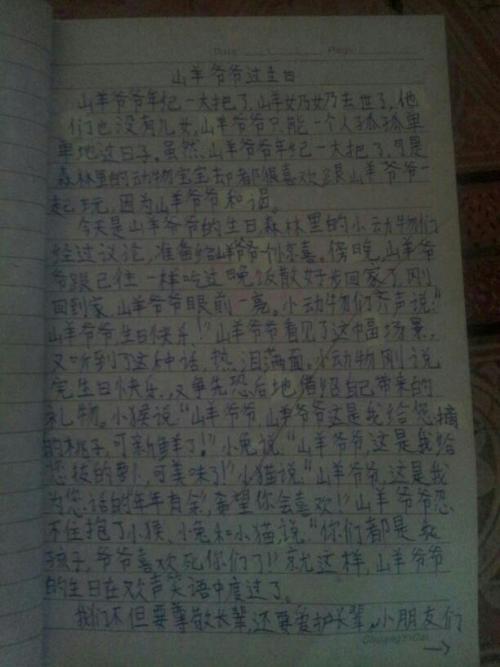 Date Page
山羊爷爷过生日
山羊爷爷年纪一大把了,山羊奶奶去世了,他
们也没有儿女,山羊爷爷只能一个人孤孤单
单地过日子。虽然山羊爷爷年纪一大把了,可是
森林里的动物宝宝却都很喜欢跟山羊爷爷一
起玩,因为山羊爷爷和谒。
今天是山羊爷爷的生日,森林里的小动物们
经过议论,准备给山羊爷爷一个惊喜。傍晚,山羊爷
爷跟已往一样吃过晚饭散好步回家了,刚
回到家,山羊爷爷眼前一亮。小动物们齐声说:“
山羊爷爷,生日快乐!”山羊爷爷看见了这幅场景,
又听到了这种话,热泪满面。小动物刚说
完生日快乐,又争先恐后地借绍自己带来的
礼物。小猴说“山羊爷爷,山羊爷爷这是我给您摘
的桃子,可新鲜了!”小兔说:“山羊爷爷,这是我给
您拔的萝卜,可美味了!”小猫说:“山羊爷爷,这是我
为您 的年年有余,希望你会喜欢!”山羊爷爷忍
不住抱了小猴、小兔和小猫说:“你们都是
孩子,爷爷喜欢死你们了!”就这样,山羊爷爷
的生日在欢声笑语中度过了。
我们不但要尊敬长辈,还要爱护长辈,小朋友们